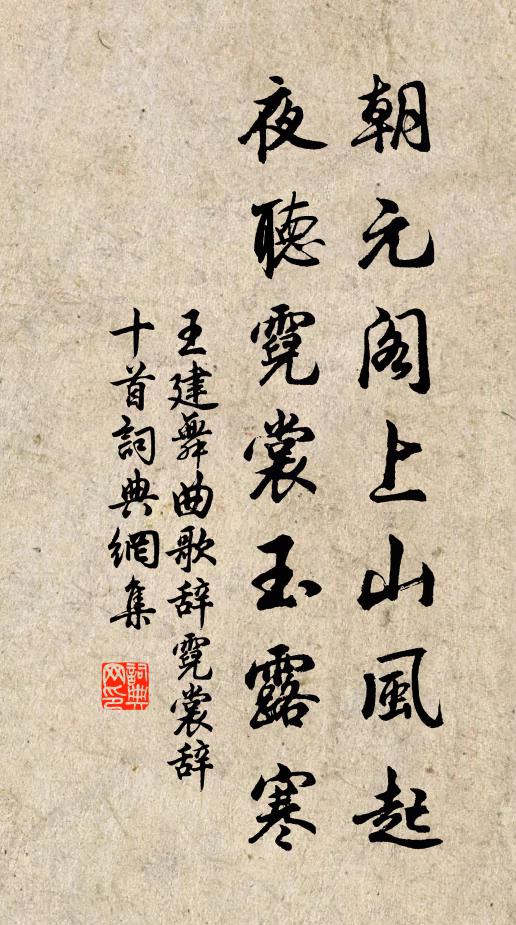 朝元阁上山風起
夜聽霓裳玉露寒
王建舞曲歌辞霓裳辞
十首詞典網集
詞典
网印